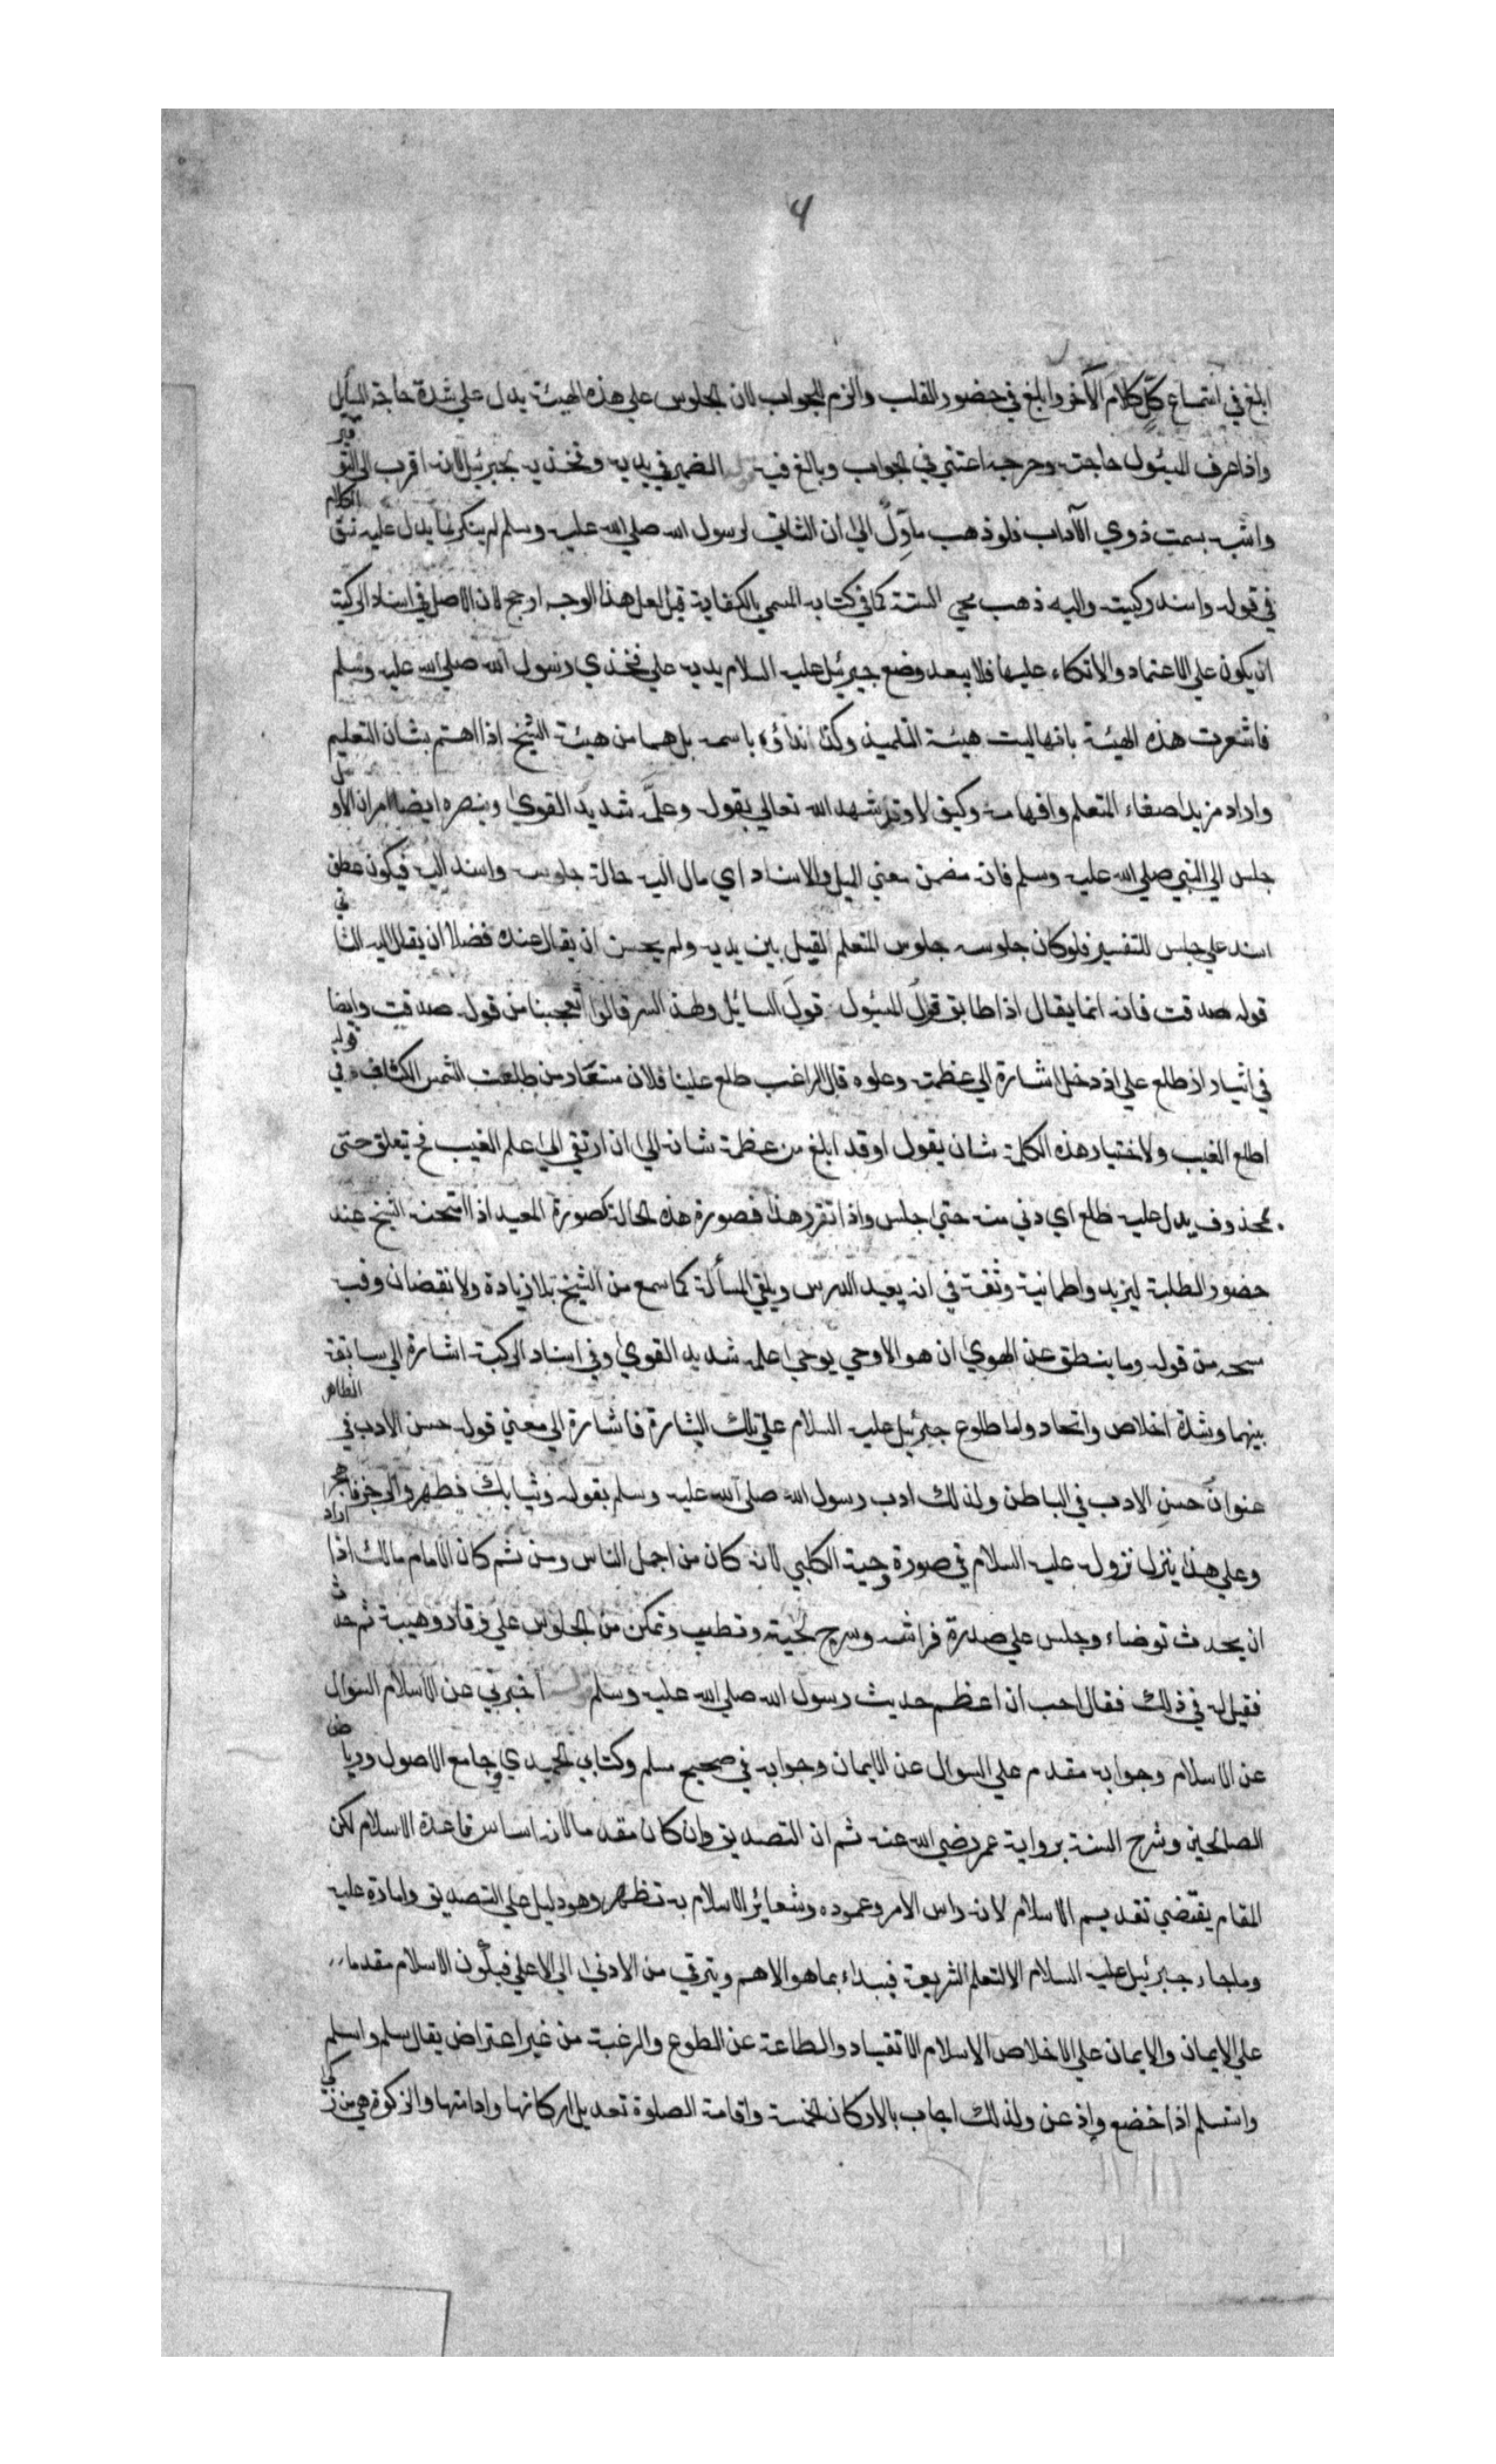 4
ابلغ في استماع كلٍّ كلام الآخر وابلغ في حضور القلب والزم للجواب لان الجلوس علي هذه الهيئة يدل علي شدة حاجة السائل
واذا عرف المسئول حاجته وحرصه اعتني في الجواب وبالغ فيه الضمير في يديه وفخذيه لجبرئيل لانه اقرب الي التوقير
واشبه بسمت ذوي الآداب فلو ذهب ماوِّل الي ان الثاني لرسول الله صلي الله عليه وسلم لم ينكر لما يدل عليه نسق الكلام
في قوله واسند ركبيته واليه ذهب محي السنة كما في كتابه المسمي بالكفاية قيل لعل هذا الوجه ارجح لان الاصل في اسناد الركبة
ان يكون علي الاعتماد والاتكاء عليها فلا يبعد وضع جبرئيل عليه السلام يديه علي فخذي رسول الله صلي الله عليه وسلم
فاشعرت هذه الهيئة بانها ليست هيئة التلميذ وكذا نداؤه باسمه بل هما من هيئة الشيخ اذا اهتم بشان التعليم
واراد مزيد اصغاء المتعلم وافهامه وكيف لا وقد شهد الله تعالي بقوله وعلَّمه شديد القوي وينصره ايضا امران الاول
جلس الي النبي صلي الله عليه وسلم فانه مضمن معني الميل والاسناد اي مال اليه حالة جلوسه واسند اليه فيكون عطف
اسند علي جلس للتفسير فلو كان جلوسه جلوس المتعلم لقيل بين يديه ولم يحسن ان يقال عنده فضلا ان يقال اليه الثاني
قوله صدقت فانه انما يقال اذا طابق قولُ المسئول قولَ السائل ولهذا السر قالوا تعجبنا من قوله صدقت وايضا
في اثيار اذ طلع علي اذ دخل اشارة الي عظمته وعلوه قال الراغب طلع علينا فلان مستعار من طلعت الشمس الكشاف في قوله
اطلع الغيب ولاختيار هذه الكلمة شان يقول او قد ابلغ من عظمة شانه الي ان ارتقي الي علم الغيب فح تعلق حتي
بمحذوف يدل عليه طلع اي دني منه حتي جلس واذا تقرر هذا فصورة هذه الحالة كصورة المعيد اذا امتحنه الشيخ عند
حضور الطلبة ليزيد واطمانية وثقة في انه يعيد الدرس ويلقي المسألة كما سمع من الشيخ بلا زيادة ولا نقصان وفيه
من قوله وما ينطق عن الهوي ان هو الا وحي يوحي علمه شديد القوي وفي اسناد الركبة اشارة الي سابقة
بينهما وشدة اخلاص واتحاد واما طلوع جبرئيل عليه السلام علي تلك الشارة فاشارة الي معني قوله حسن الادب في الظاهر
عنوانُ حسن الادب في الباطن ولذلك ادب رسول الله صلي الله عليه وسلم بقوله وثيابك فطهر والرجز فاهجر
وعلي هذا ينزل نزوله عليه السلام في صورة دحية الكلبي لانه كان من اجمل الناس ومن ثم كان الامام مالك اذا اراد
ان يحدث توضاء وجلس علي صدرة فراشه وسرح لحيته وتطيب وتمكن من الجلوس علي وقار وهيبة ثم حدث
فقيل له في ذلك فقال احب ان اعظم حديث رسول الله صلي الله عليه وسلم اخبرني عن الاسلام السؤال
عن الاسلام وجوابه مقدم علي السؤال عن الايمان وجوابه في صحيح مسلم وكتابي الحميدي وجامع الاصول ورياض
الصالحين وشرح السنة برواية عمر رضي الله عنه ثم ان التصديق وان كان مقدما لانه اساس قاعدة الاسلام لكن
المقام يقتضي تقديم الاسلام لانه راس الامر وعموده وشعائر الاسلام به تظهر وهو دليل علي التصديق وامارة عليه
وما جاء جبرئيل عليه السلام الا لتعلم الشريعة فيبداء بما هو الاهم ويترقي من الادني الي الاعلي فيكون الاسلام مقدما
علي الايمان والايمان علي الاخلاص الاسلام الانقياد والطاعة عن الطوع والرغبة من غير اعتراض يقال سلم واسلم
واستسلم اذا خضع واذعن ولذلك اجاب بالاركان الخمسة واقامة الصلوة تعديل اركانها وادامتها والزكوة هي من زكي